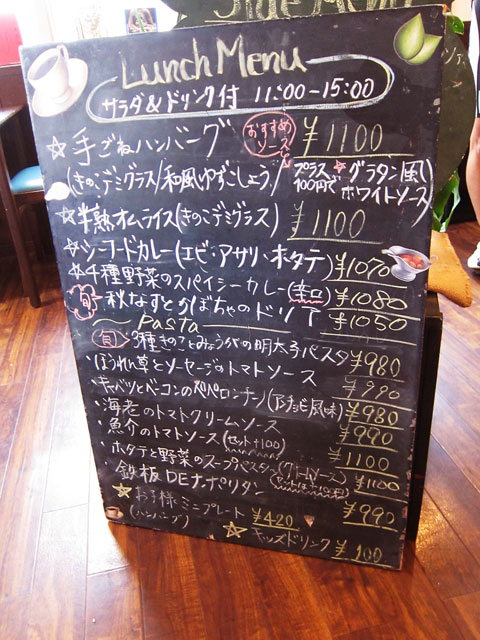 Lunch Menu
サラダ&ドリンク付 11:00-15:00
☆手ごねハンバーグ おすすめソース ¥1100
(きのこデミグラス/和風ゆずこしょう/プラス100円で☆グラタン風ホワイトソース)
☆半熟オムライス(きのこデミグラス) ¥1100
☆シーフードカレー(エビ・アサリ・ホタテ) ¥1070
☆4種野菜のスパイシーカレー(辛口) ¥1080
旬 秋なすとかぼちゃのドリア ¥1050
Pasta
旬 3種きのことみょうがの明太子パスタ ¥980
・ほうれん草とソーセージのトマトソース ¥990
・キャベツとベーコンのペペロンチーノ(アンチョビ風味) ¥980
・海老のトマトクリームソース ¥990
・魚介のトマトソース(セット+100) ¥1100
・ホタテと野菜のスープパスタ ¥1100
・鉄板DEナポリタン ¥990
☆お子様ミニプレート ¥420
(ハンバーグ)
☆キッズドリンク ¥100